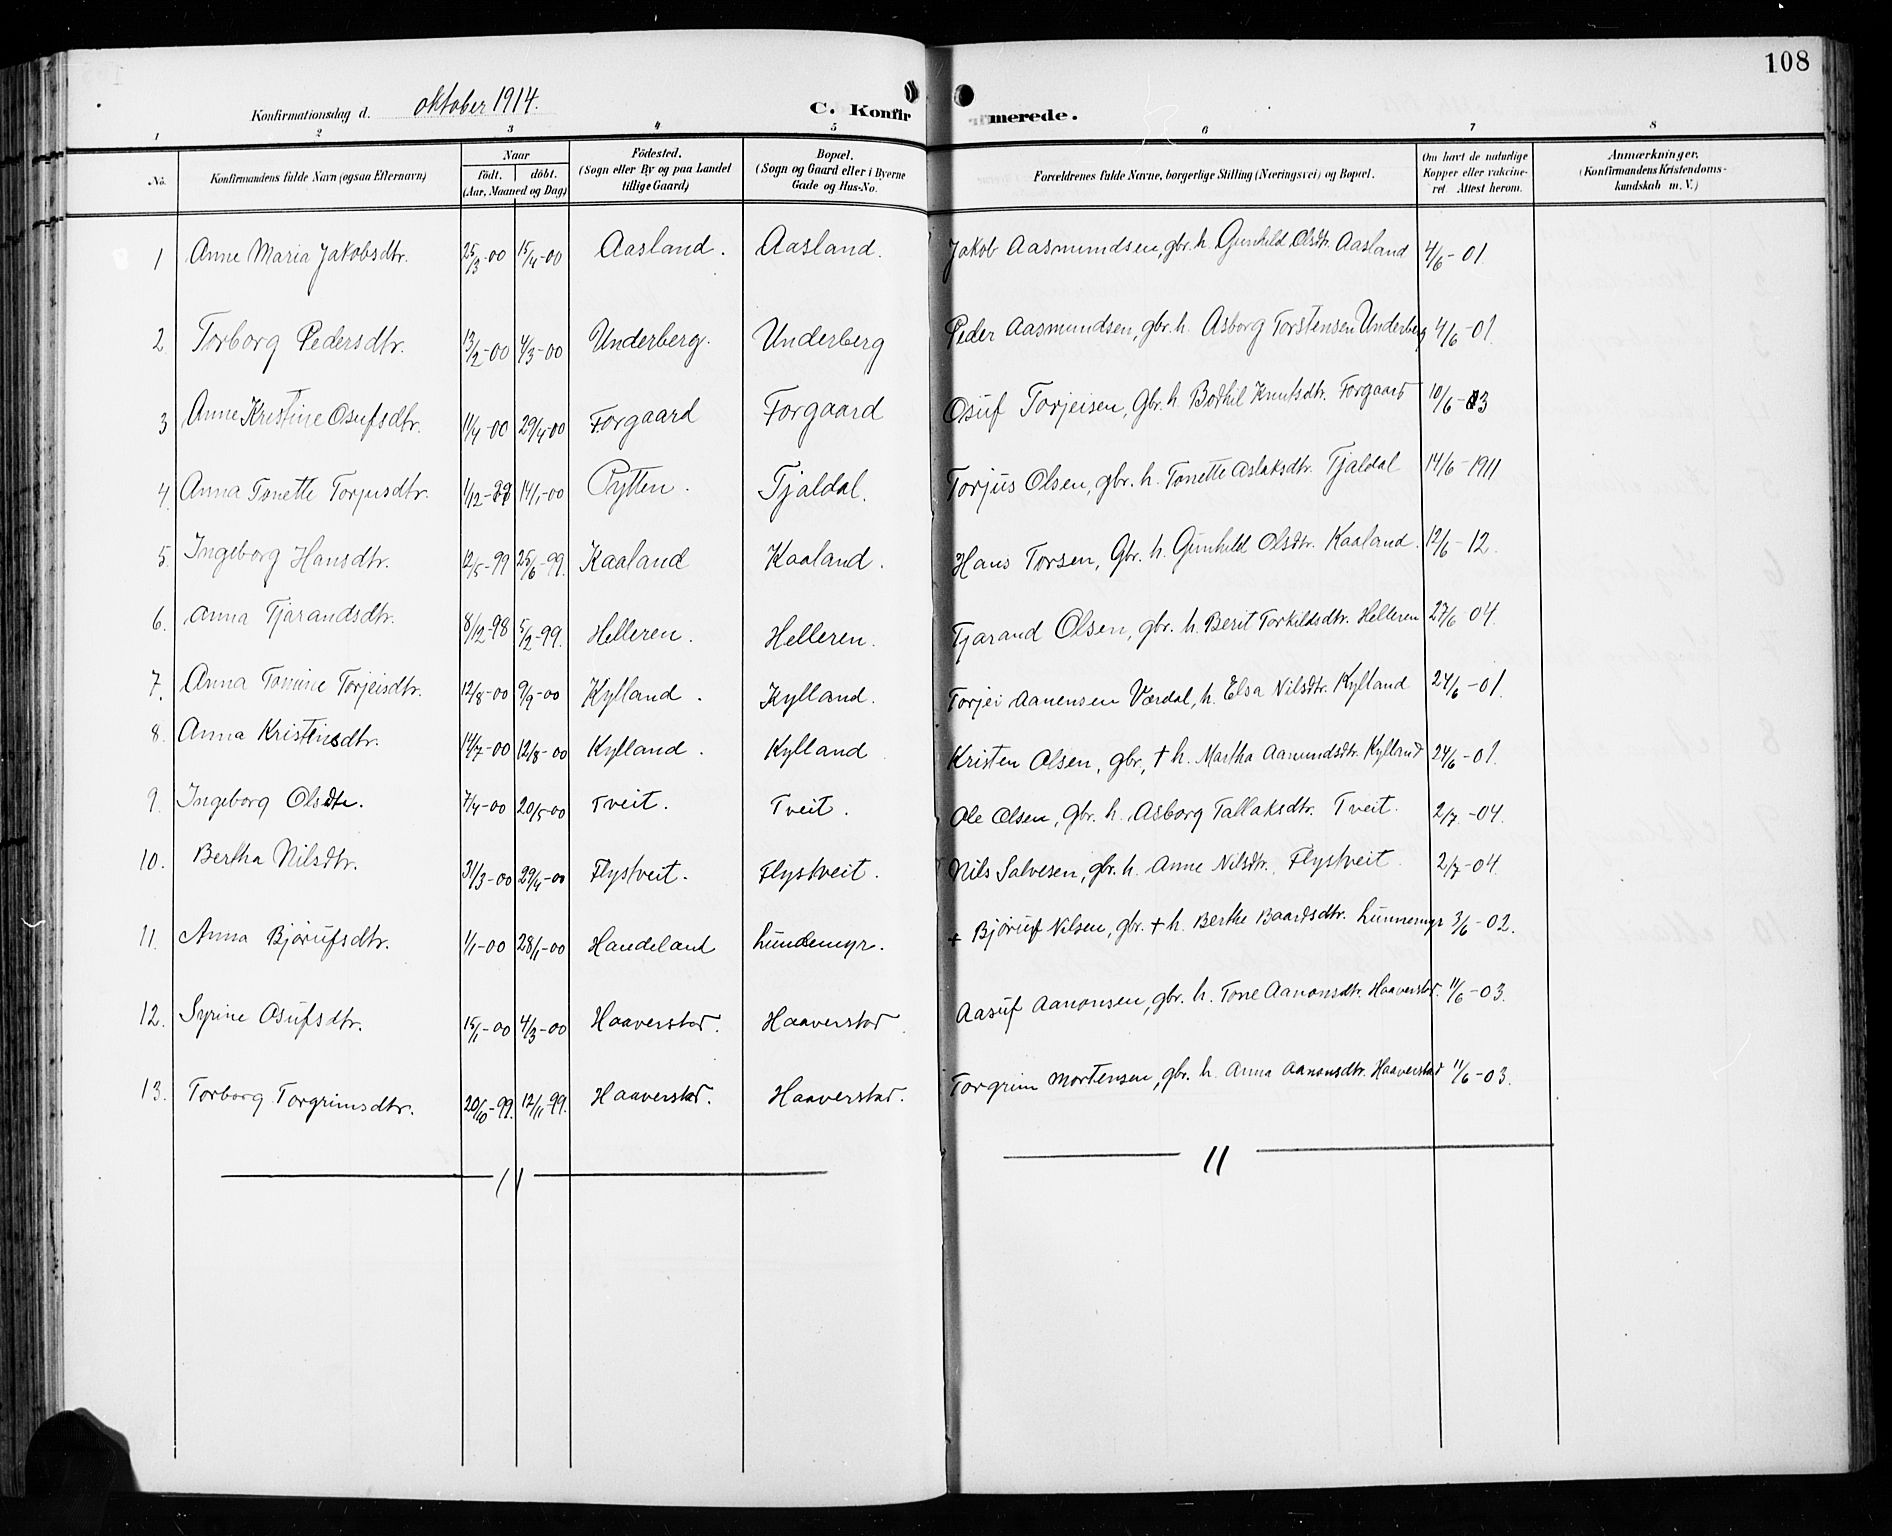 108
Konfirmationsdag d. oktober 1914. C. Konfirmerede.
1 2 3 4 5 6 7 8
No. Konfirmandens fulde Navn (ogsaa Efternavn) Naar født. døbt. (Aar, Maaned og Dag) Fødested. (Sogn eller By og paa Landet tillige Gaard) Bopæl. (Sogn og Gaard eller i Byerne Gade og Hus-No. Forældrenes fulde Navne, borgerlige Stilling (Næringsvei) og Bopæl. Om havt de naturlige Kopper eller vakcineret Attest herom. Anmærkninger. (Konfirmandens Kristendomskundskab m. V.)
1 Anne Maria Jakobsdtr. 25/3-00 15/4-00 Aasland. Aasland. Jakob Aasmundsen, gbr. h. Gunhild Olsdtr. Aasland 4/6-01.
2 Torborg Pedersdtr. 13/2-00 4/3-00 Underberg. Underberg Peder Aasmundsen, gbr. h. Asborg Torstensen Underberg 4/6-01.
3 Anne Kristine Osufsdtr. 11/4-00 29/4-00 Forgaard Forgaard Osuf Torjeisen, Gbr. h. Bodhil Knutsdtr. Forgaard 10/6-03
4. Anna Tonette Torjusdtr. 1/12-99 14/1-00 Pytten. Tjaldal. Torjus Olsen, gbr. h. Tonette Aslaksdtr. Tjaldal 14/6-1911
5. Ingeborg Hansdtr. 12/5-99 25/6-99. Kaaland Kaaland. Hans Torsen, Gbr. h. Gunhild Olsdtr. Kaaland. 12/6-12.
6. Anna Tjarandsdtr. 8/12-98 5/2-99. Helleren. Helleren. Tjarand Olsen, gbr. h. Berit Torkildsdtr. Helleren 27/6-04.
7. Anna Tomine Torjeisdtr. 12/8-00 9/9-00 Kylland. Kylland. Torjei Aanensen Værdal, h. Elsa Nilsdtr. Kylland 24/6-01.
8. Anna Kristensdtr. 14/7-00 12/8-00 Kylland. Kylland Kristen Olsen, gbr., † h. Martha Aamundsdtr. Kylland 24/6-01.
9. Ingeborg Olsdtr. 7/4-00 20/5-00 Tveit. Tveit. Ole Olsen, Gbr. h. Asborg Tallaksdtr. Tveit. 2/7-04.
10. Bertha Nilsdtr. 31/3-00 29/4-00 Flystveit. Flystveit. Nils Salvesen, gbr. h. Anne Nilsdtr. Flystveit. 2/7-04.
11. Anna Bjørufsdtr. 1/1-00 28/1-00 Haudeland Lundemyr. † Bjøruf Nilsen, gbr. † h. Berthe Baardsdtr. Lunnemyr 3/6-02.
12. Syrine Osufsdtr. 15/1-00 4/3-00 Haaverstad. Haaverstad. Aasuf Aanonsen, gbr. h. Tone Aanonsdtr. Haaverstad. 11/6-03.
13. Torborg Torgrimsdtr. 20/10-99. 12/11-99. Haaverstad. Haaverstad. Torgrim Mortensen, gbr. h. Anna Aanonsdtr. Haaverstad 11/6-03.
11 11